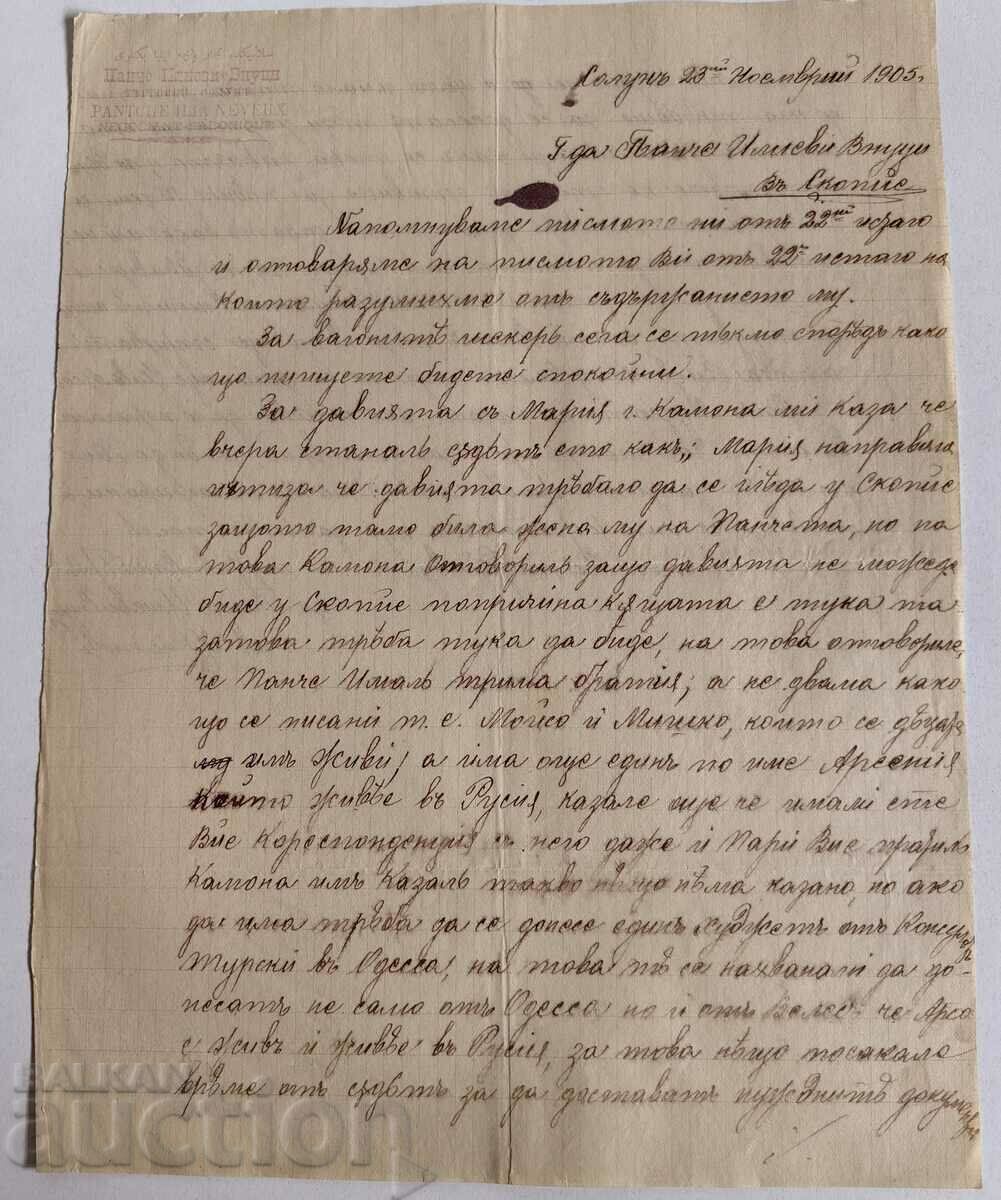 Панчо Илиеви Внуци
PANTCHE ILIA NEVEUX
Солунъ 23ий Ноемврий 1905г
Г-да Панче Илиеви Внуци
Въ Скопие
Напомнуваме писмото ни отъ 22ий истаго
и отоваряме на писмото Ви отъ 22й истаго на
което разумихме отъ съдържанието му.
За вагонитѣ шекеръ сега се тъкмо спорѣдъ како
що пишуете бидете спокойни.
За давията съ Мария г. Камона ми каза че
вчера станалъ сѫдътъ ето какъ; Мария направила
итиза че давията трѣбало да се глѣда у Скопие
защото тамо била жена му на Панчета, но на
това Камона Отговорилъ защо давията не може да
биде у Скопие попричина кящата е тука та
затова трѣба тука да биде, на това отговориле,
че Панче Ималъ трима братия; а не двама како
що се писани т. е. Мойсо и Мишко, които се дѣцата
имъ живи; а има още единъ по име Арсения
който живѣе въ Русия, казале още че имали сте
Вие Кореспонденция съ него даже и Пари Вие пратилъ
Камона имъ Казалъ такво нѣщо нѣма казано, но ако
да има трѣба да се донесе единъ худжетъ отъ Консулатъ
Турски въ Одесса, на това тѣ се нахванали да до-
несатъ не само отъ Одесса но и отъ Велес че Арсо
е живъ и живѣе въ Русия, за това нѣщо поискале
врѣме отъ сѫдътъ за да доставатъ нужднитѣ документи
BALKAN
auction